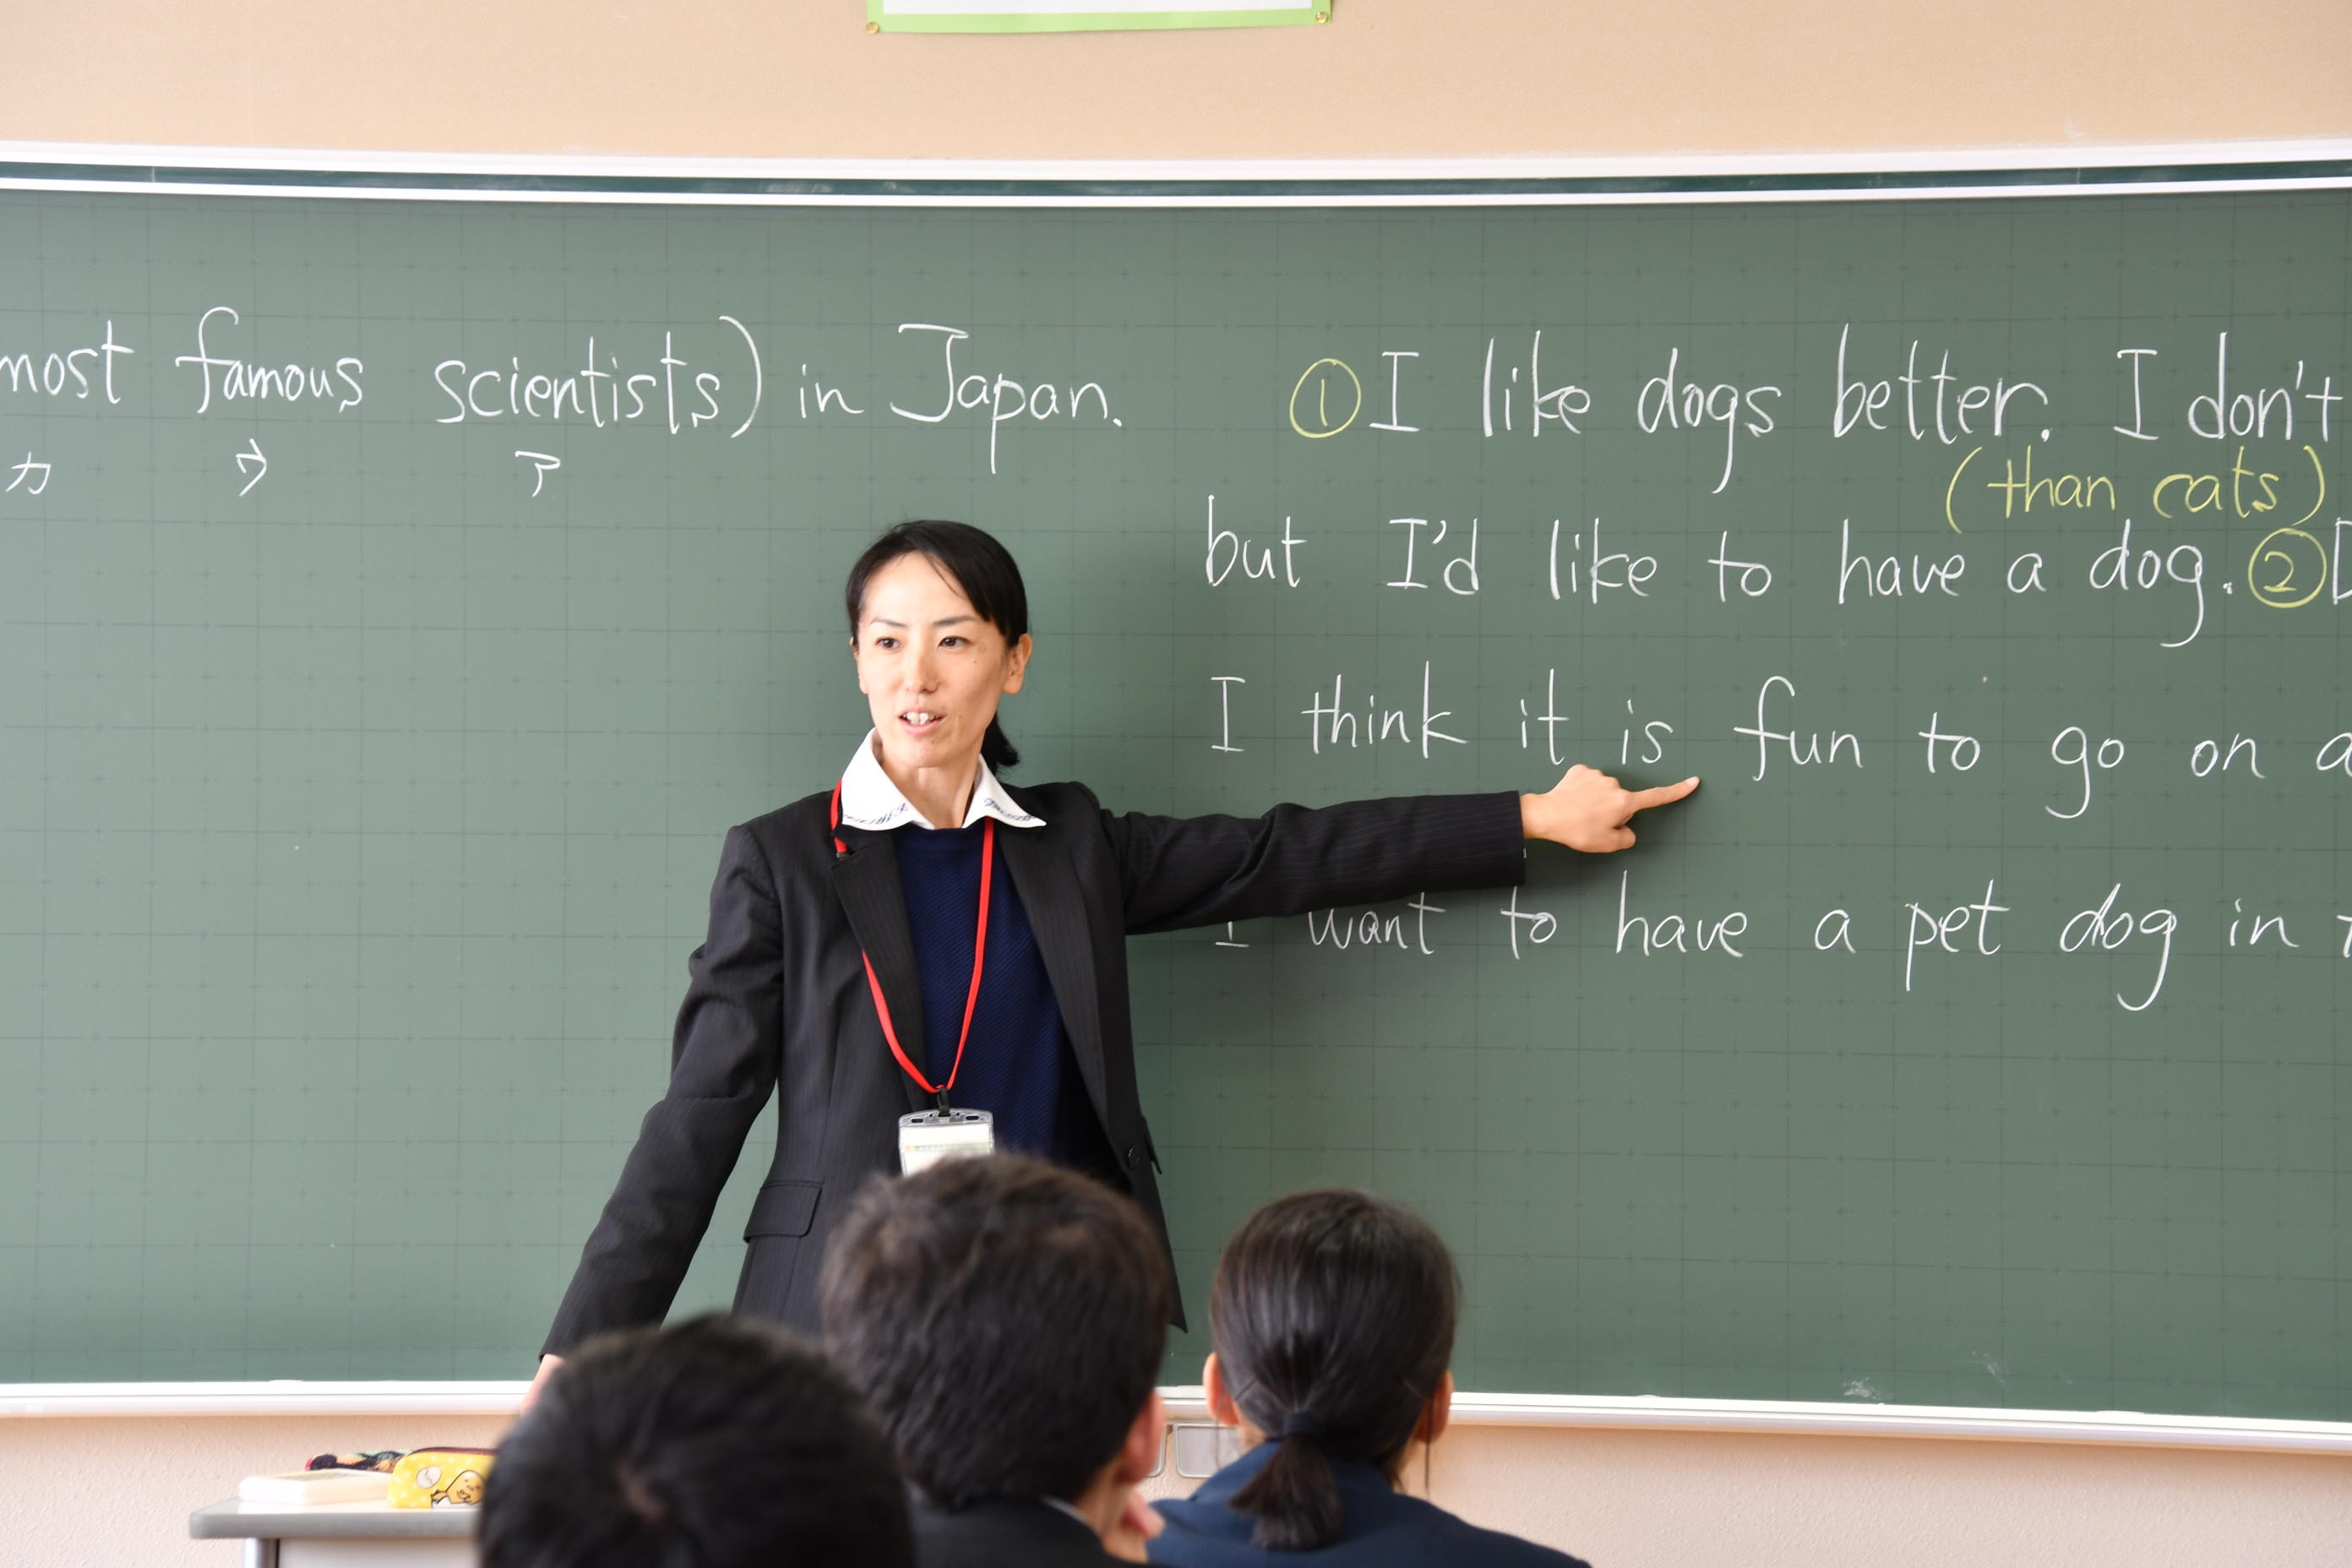 most famous scientists) in Japan.
カ ウ ア
① I like dogs better. I don't
(than cats)
but I'd like to have a dog. ②
I think it is fun to go on
I want to have a pet dog in